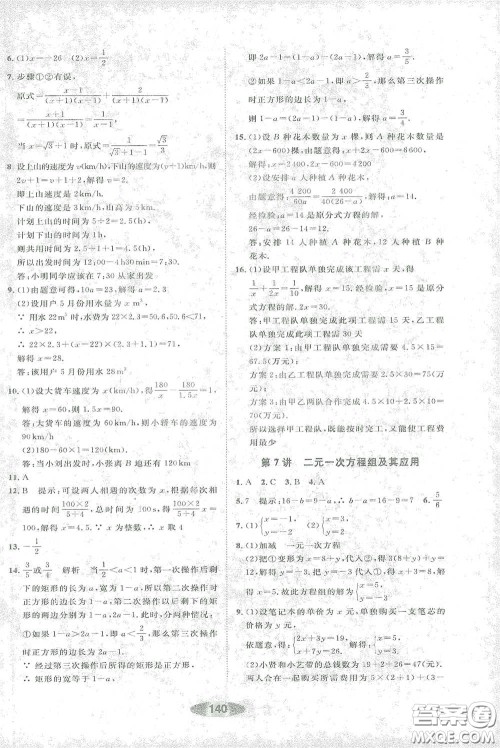 6. (1)x=-26 (2)x=1/2
7. 步骤①②有误,
原式=x/((x+1)(x-1))-
当x=√3-1时,原式=1/(√3-1+1)=√3/3.
8. 设上山的速度为v(km/h),下山的速度为(v+1)km/h,则
2v+1=v+1+2,解得v=2.
即上山速度是2km/h.
则下山的速度是3km/h.
计划上山的时间为5÷2=2.5(h).
计划下山的时间为1 h.
则共用时间为2.5+1+1=4.5(h).
所以出发时间为12:00-4.5 h=7:30.
答:小明同学应该在7:30从家出发.
9. (1)由题意得10a=23,解得a=2.3.
(2)设用户5月份用水量为x m³.
∵用水22 m³时,水费为22×2.3=50.6<71,
∴x>22.
∴22×2.3+(x-22)×(2.3+1.1)=71.
解得x=28.
答:该用户5月份用水28 m³.
10. (1)设大货车速度为x km/h,则180/x-180/1.5x=1.
解得x=60,则1.5x=90.
答:大货车的速度为60 km/h,小轿车的速度为90km/h.
(2)180-60×1=120(km).
11. A
12. B 提示:可设两人相遇的次数为x,依题意有
(100×2)/(5+4) x=100×6,解得x=4.5.
∵x为整数,∴x取4.
13. -1/2
14. 3/5或3/4 解析
第一次操作后剩下的矩形的长为a,宽为1-a,所以第二次操作时正方形的边长为1-a,第二次操作以后剩下的矩形的两边分别为1-a,2a-1.
由此,分两种情况:
①如果1-a>2a-1,即a<2/3,那么第三次操作时正方形的边长为2a-1.
∵经过第三次操作后所得的矩形是正方形,
∴矩形的宽等于1-a,
即2a-1=(1-a)-(2a-1),解得a=3/5.
②如果1-a<2a-1,即a>2/3,那么第三次操作时正方形的边长为1-a.
则1-a=(2a-1)-(1-a),解得a=3/4.
15. (1)设B种花木数量为x棵,则A种花木数量是(2x-600)棵.由题意得x+(2x-600)=6600.
解得x=2400,2x-600=4200.
答:
(2)设安排a人种植A种花木,
由题意得4200/60a=2400/40(26-a),解得a=14.
经检验,a=14是原分式方程的解.
26-a=26-14=12.
答:安排14人种植A种花木,12人种植B种花木.
16. (1)设甲工程队单独完成该工程需x天,则
解得x=15.
经检验,x=15是原分式方程的解,2x=30.
答:甲工程队单独完成此项工程需15天,乙工程队单独完成此项工程需30天
(2)方案1:由甲工程队单独完成需要4.5×15=67.5(万元);
方案2:由乙工程队单独完成需要2.5×30=75(万元);
方案3:由甲乙两队合作完成需要4.5×10+2.5×10=70(万元).
所以选择甲工程队,既能按时完工,又能使工程费用最少
第7讲 二元一次方程组及其应用
1. A 2. B 3. B 4. A
5. 7 提示:16-b=9-a,∴b-a=16-9=7. 6. 5/8
7. (1){x=-1, y=1 (2){x=5, y=3
8. (1)加减 一元一次方程
9. (1)设笔记本的单价为x元,单独购买一支笔芯的价格为y元.
依题意,得{2x+3y=19, x+7y=26,解得{x=5, y=3.
(2)小贤和小艺带的总钱数为19+2+26=47(元).
140